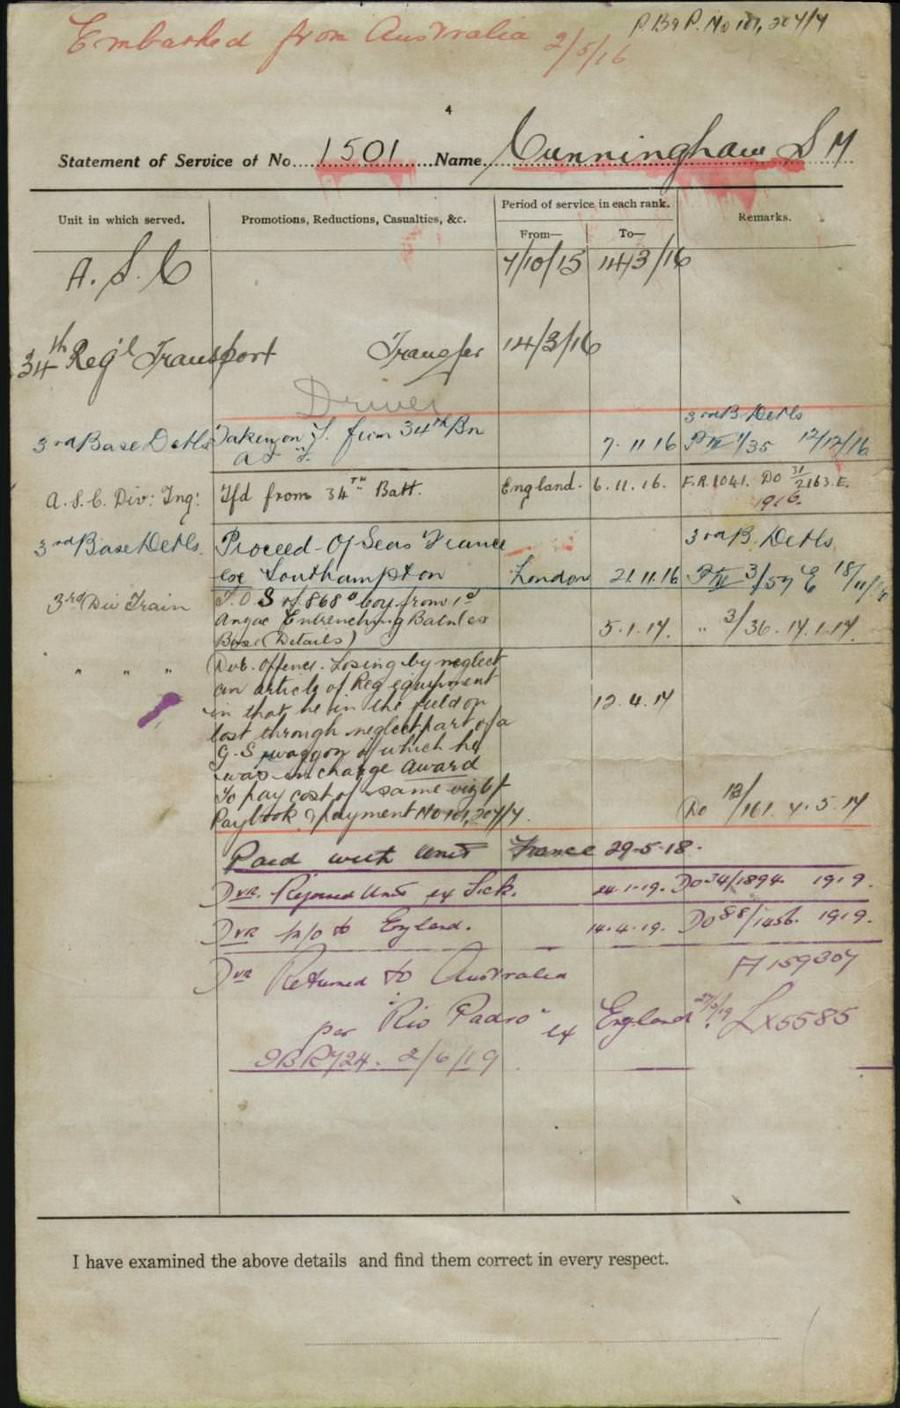 Embarked from Australia 2/5/16
P.B & P. No 101,204/4
4
Statement of Service of No. 1501 Name Cunningham S M
Unit in which served.
Promotions, Reductions, Casualties, &c.
Period of service in each rank.
From—
To—
Remarks.
A. S. C 7/10/15 14/3/16
34th Reg'l Transport Transfer 14/3/16
Driver
3rd B. Detls
3rd Base Detls Taken on from 34th Bn 7.11.16 1/35 12/12/16
A.S.C. Div: Tng: Tfd from 34TH Batt. England. 6.11.16. F.R.1041. Do 31/2163.E.
1916.
3rd Base Detls. Proceed Oseas France 3rd B. Detls
ex Southampton London 21.11.16 3/57 E 18/11/16
3rd Div Train T.O.S of 868 coy from 1st
Anzac Entrenching Batn ex
Base (Details) 5.1.17. " 3/36. 17.1.17.
" " " Offence. Losing by neglect
an article of Reg equipment
in that he in the field on 12.4.17
lost through neglect part of a
G.S waggon of which he
was in charge Award
To pay cost of same
Paybook payment No 101,204/4. Do 12/161. 4.5.17
Paid with Unit France 29-5-18.
Dvr. Rejoined Unit ex Sick. 14.1.19. Do 24/1894. 1919.
Dvr m/o to England. 14.4.19. Do 88/1456. 1919.
Dvr Returned to Australia A159307
per "Rio Padro" ex England 27/5/19. Lx5585
724. 2/6/19
I have examined the above details and find them correct in every respect.